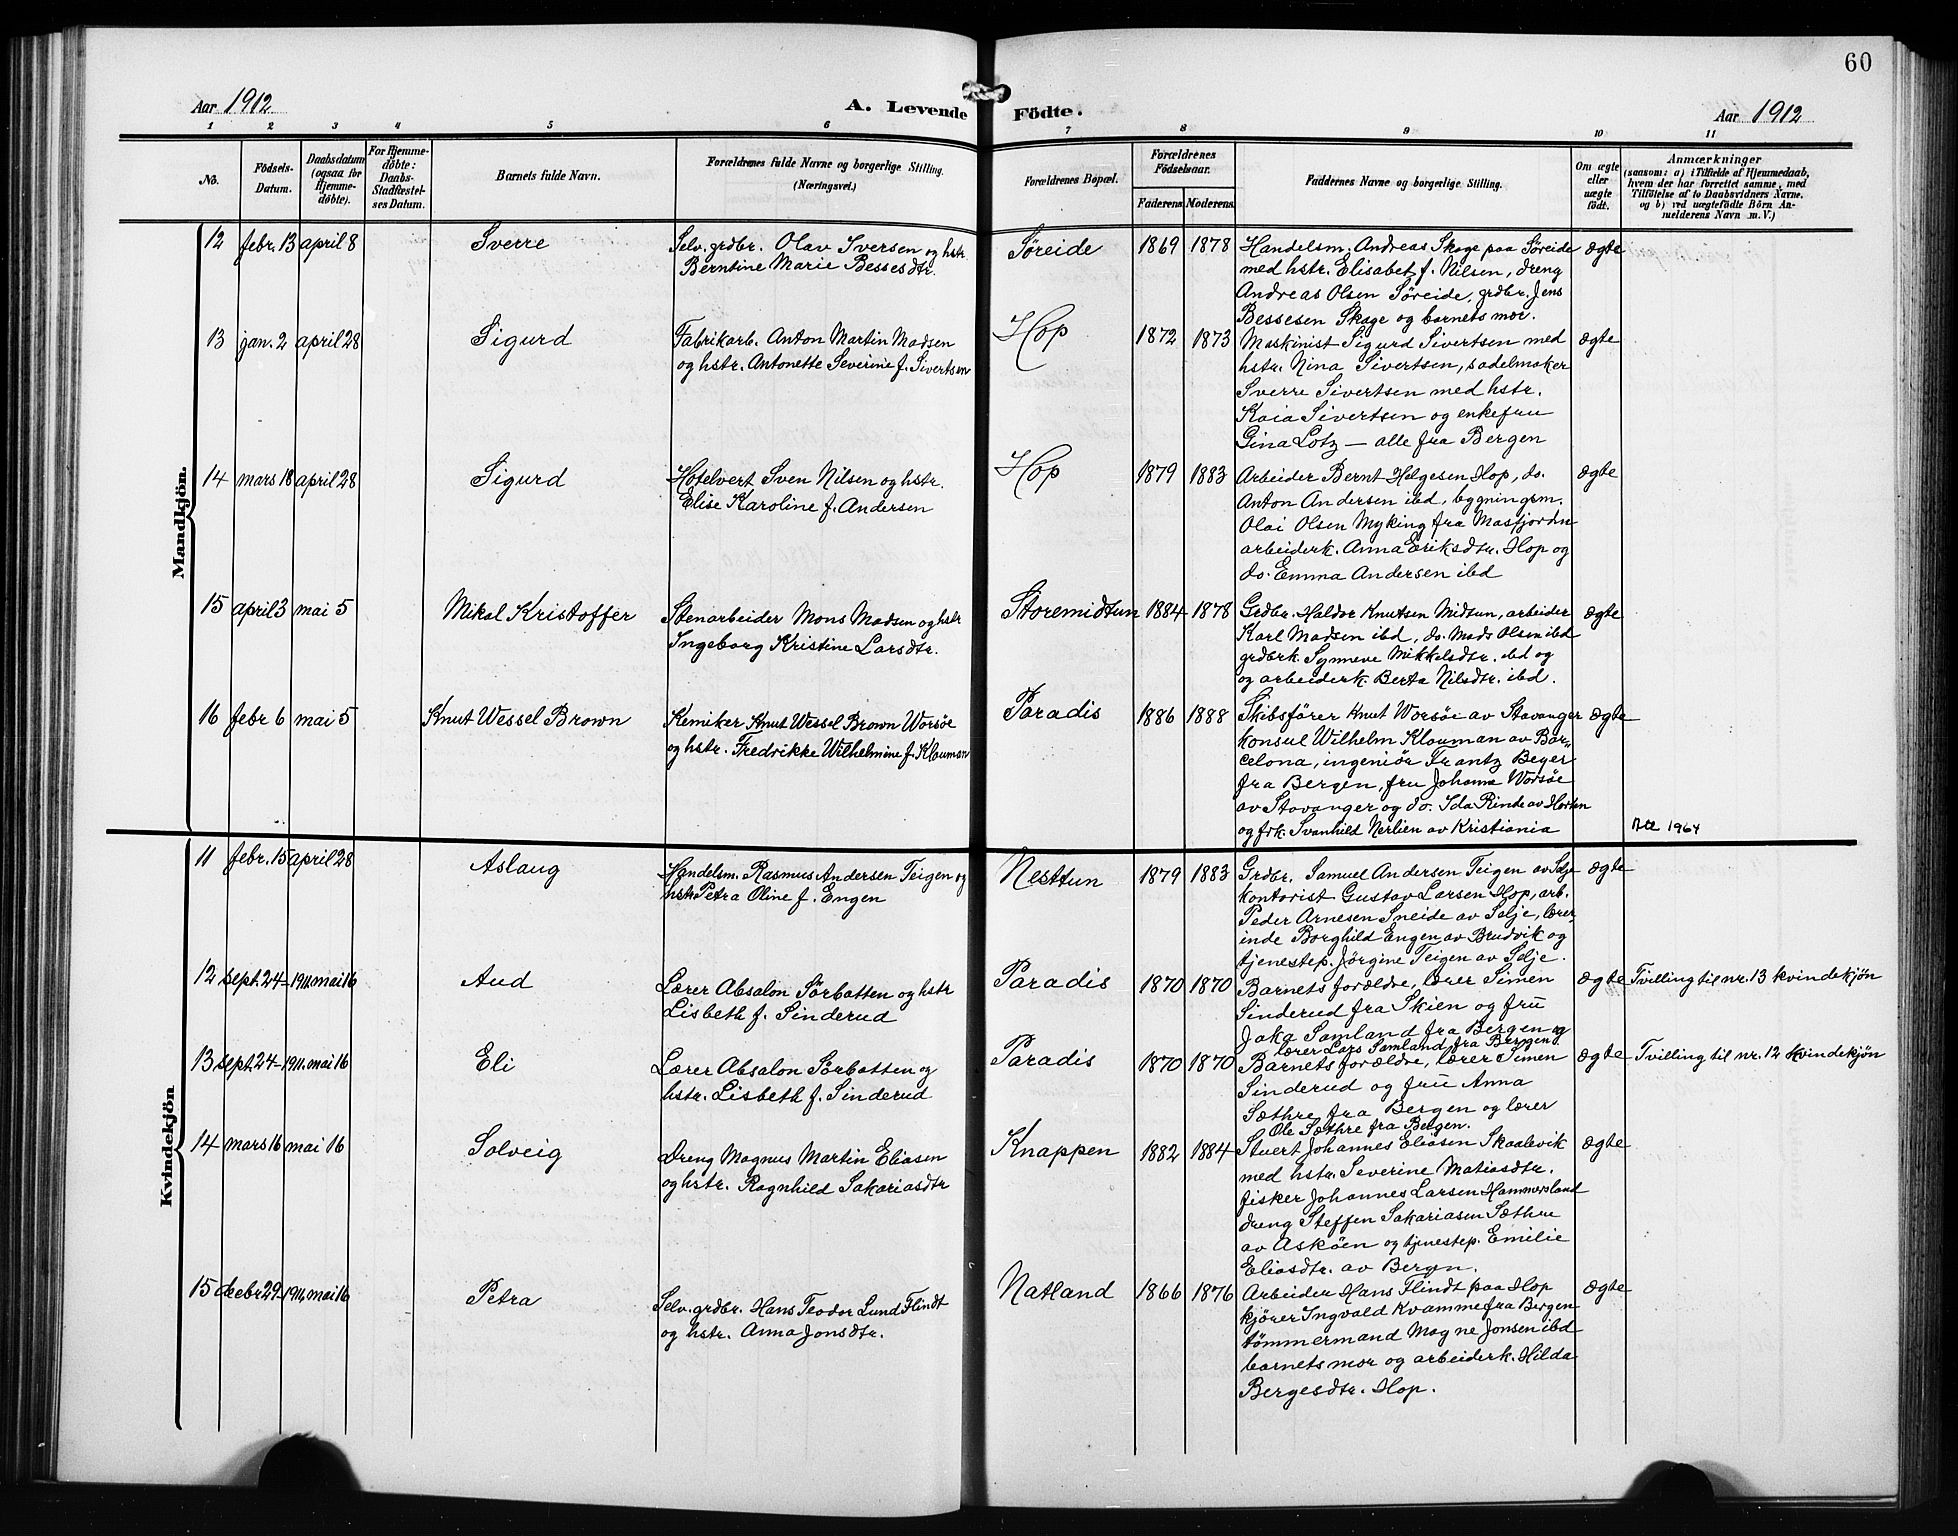 60
Aar 1912
A. Levende Födte.
Aar 1912
1 2 3 4 5 6 7 8 9 10 11
No.
Födsels-
Datum.
Daabsdatum
(ogsaa for
Hjemme-
döbte).
For Hjemme-
döbte:
Daabs-
Stadfæstel-
ses Datum.
Barnets fulde Navn.
Forældrenes fulde Navne og borgerlige Stilling.
(Næringsvei.)
Forældrenes Bopæl.
Forældrenes
Födselsaar.
Faderens. Moderens.
Faddernes Navne og borgerlige Stilling.
Om ægte
eller
uægte
födt.
Anmærkninger
(saasom: a) i Tilfælde af Hjemmedaab,
hvem der har forrettet samme, med
Tilföielse af to Daabsvidners Navne.
og b) ved uægtefödte Börn An-
melderens Navn m. V.)
Mandkjön.
12 febr. 13 april 8 Sverre
Selv. grdbr. Olav Iversen og hstr.
Berntine Marie Bessesdtr.
Søreide 1869 1878
Handelsm. Andreas Skage paa Søreide
med hstr. Elisabet f. Nilsen, dreng
Andreas Olsen Søreide, grdbr. Jens
Bessesen Skage og barnets mor.
ægte
13 jan. 2 april 28 Sigurd
Fabrikarb. Anton Martin Madsen
og hstr. Antonette Severine f. Sivertsen
Hop 1872 1873
Maskinist Sigurd Sivertsen med
hstr. Nina Sivertsen, sadelmaker
Sverre Sivertsen med hstr.
Kaia Sivertsen og enkefru
Gina Lotz — alle fra Bergen
ægte
14 mars 18 april 28 Sigurd
Hotelvert Sven Nilsen og hstr.
Elise Karoline f. Andersen
Hop 1879 1883
Arbeider Bernt Helgesen Hop, do.
Anton Andersen ibd, bygningsm.
Olai Olsen Myking fra Masfjordn
arbeiderk. Anna Eriksdtr. Hop og
do. Emma Andersen ibd
ægte
15 april 3 mai 5 Mikal Kristoffer
Stenarbeider Mons Madsen og hstr
Ingeborg Kristine Larsdtr.
Storemidtun 1884 1878
Grdbr. Haldor Knutsen Midtun, arbeider
Karl Madsen ibd, do. Mads Olsen ibd
grdbrk. Synneve Mikkelsdtr. ibd og
og arbeiderk. Berta Nilsdtr. ibd.
ægte
16 febr 6 mai 5 Knut Wessel Brown
Kemiker Knut Wessel Brown Worsöe
og hstr. Fredrikke Wilhelmine f. Klouman
Paradis 1886 1888
Skibsfører Knut Worsöe av Stavanger
konsul Wilhelm Klouman av Bar„
celona, ingeniør Frantz Beyer
fra Bergen, fru Johanne Worsöe
av Stavanger og do. Ida Rinde av Horten
og frk. Svanhild Nerlien av Kristiania
ægte
1964
Kvindekjön
11 febr. 15 april 28 Aslaug
Handelsm. Rasmus Andersen Teigen og
hstr. Petra Oline f. Engen
Nesttun 1879 1883
Grdbr. Samuel Andersen Teigen av Selje
kontorist Gustav Larsen Hop, arb.
Peder Arnesen Sneide av Selje, lærer„
inde Borghild Engen av Brudvik og
tjenestep. Jørgine Teigen av Selje.
ægte
12 sept. 24 - 1911. mai 16 Aud
Lærer Absalon Sörbotten og hstr
Lisbeth f. Sinderud
Paradis 1870 1870
Barnets forældre, lærer Simen
Sinderud fra Skien og fru
Jaka Samland fra Bergen og
lærer Lars Samland fra Bergen.
ægte Tvilling til nr. 13 kvindekjøn
13 sept. 24 - 1911. mai 16 Eli
Lærer Absalon Sörbotten og
hstr. Lisbeth f. Sinderud
Paradis 1870 1870
Barnets forældre, lærer Simen
Sinderud og fru Anna
Sæthre fra Bergen og lærer
Ole Sæthre fra Bergen.
ægte Tvilling til nr. 12 kvindekjøn
14 mars 16 mai 16 Solveig
Dreng Magnus Martin Eliasen
og hstr. Ragnhild Sakariasdtr
Knappen 1882 1884
Stuert Johannes Eliasen Skaalevik
med hstr. Severine Matiasdtr.
fisker Johannes Larsen Hammersland
dreng Steffen Sakariasen Sæthre
av Askøen og tjenestep. Emilie
Eliasdtr. av Bergen.
ægte
15 decbr 29 - 1911. mai 16 Petra
Selv. grdbr. Hans Teodor Lund Flindt
og hstr. Anna Jonsdtr.
Natland 1866 1876
Arbeider Hans Flindt paa Hop
kjører Ingvald Kvamme fra Bergen
tømmermand Magne Jonsen ibd
barnets mor og arbeiderk. Hilda
Bergesdtr. Hop.
ægte